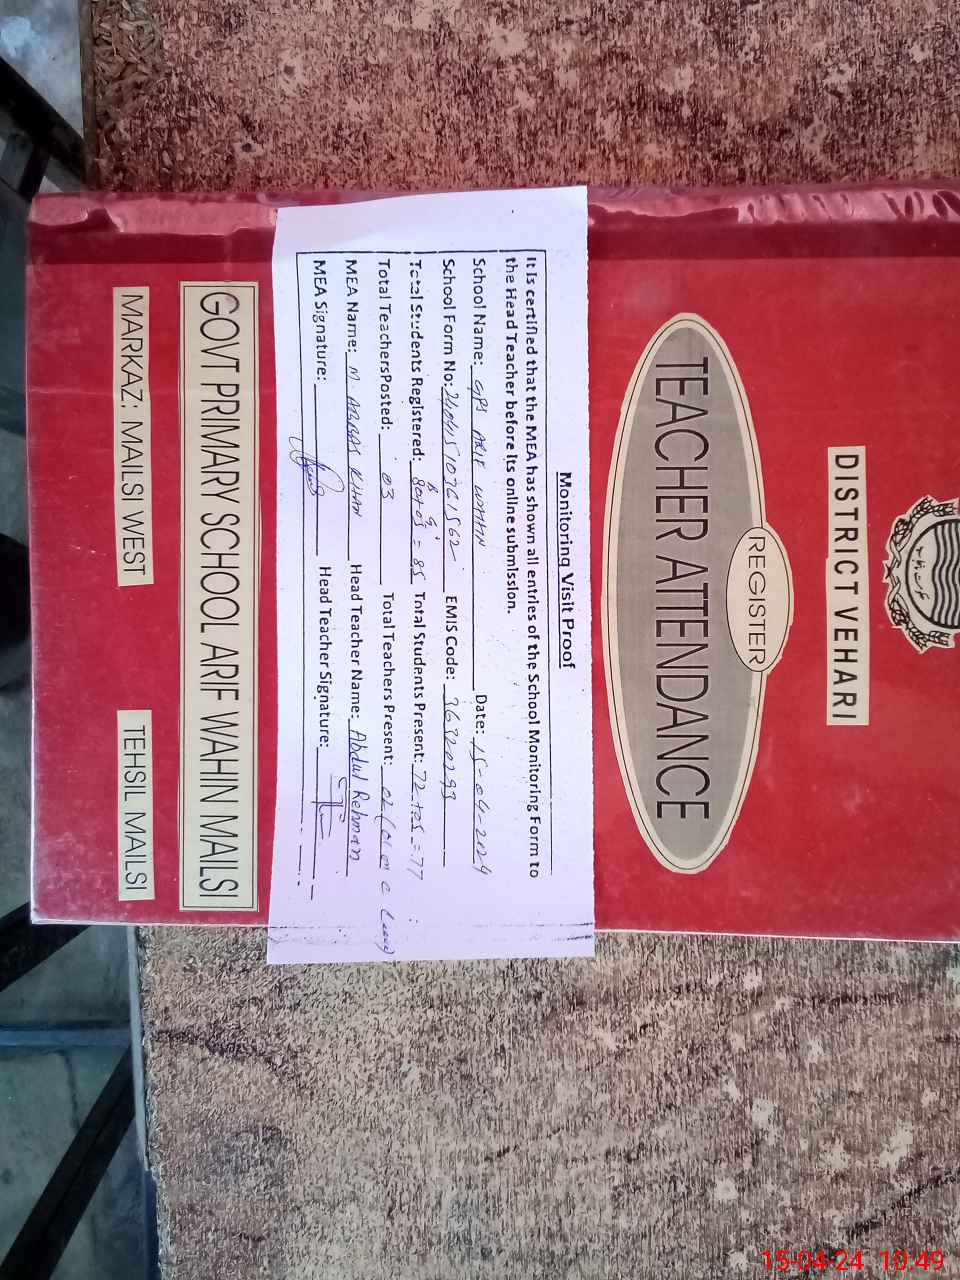 DISTRICT VEHARI
REGISTER
TEACHER ATTENDANCE
Monitoring Visit Proof
It is certified that the MEA has shown all entries of the School Monitoring Form to
the Head Teacher before its online submission.
School Name: GPS ARIF WAHIN Date: 15-04-2024
School Form No: EMIS Code: 36320293
Total Students Registered: 80+05 = 85 Total Students Present: 72+05 = 77
Total Teachers Posted: 03 Total Teachers Present: 02
MEA Name: M. ABBAS KHAN Head Teacher Name: Abdul Rehman
MEA Signature: Head Teacher Signature:
GOVT PRIMARY SCHOOL ARIF WAHIN MAILSI
MARKAZ: MAILSI WEST TEHSIL MAILSI
15-04-24 10:49